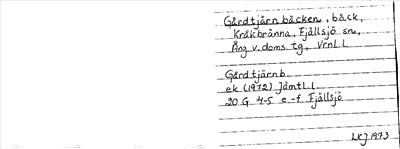 Gårdtjärnbäcken, bäck,
Kråkbränna, Fjällsjö sn,
Ång v. doms. tg., Vrnl. l.
Gårdtjärnb
ek (1972) Jämtl. l
20 G 4-5 e-f Fjällsjö
LKJ 1973